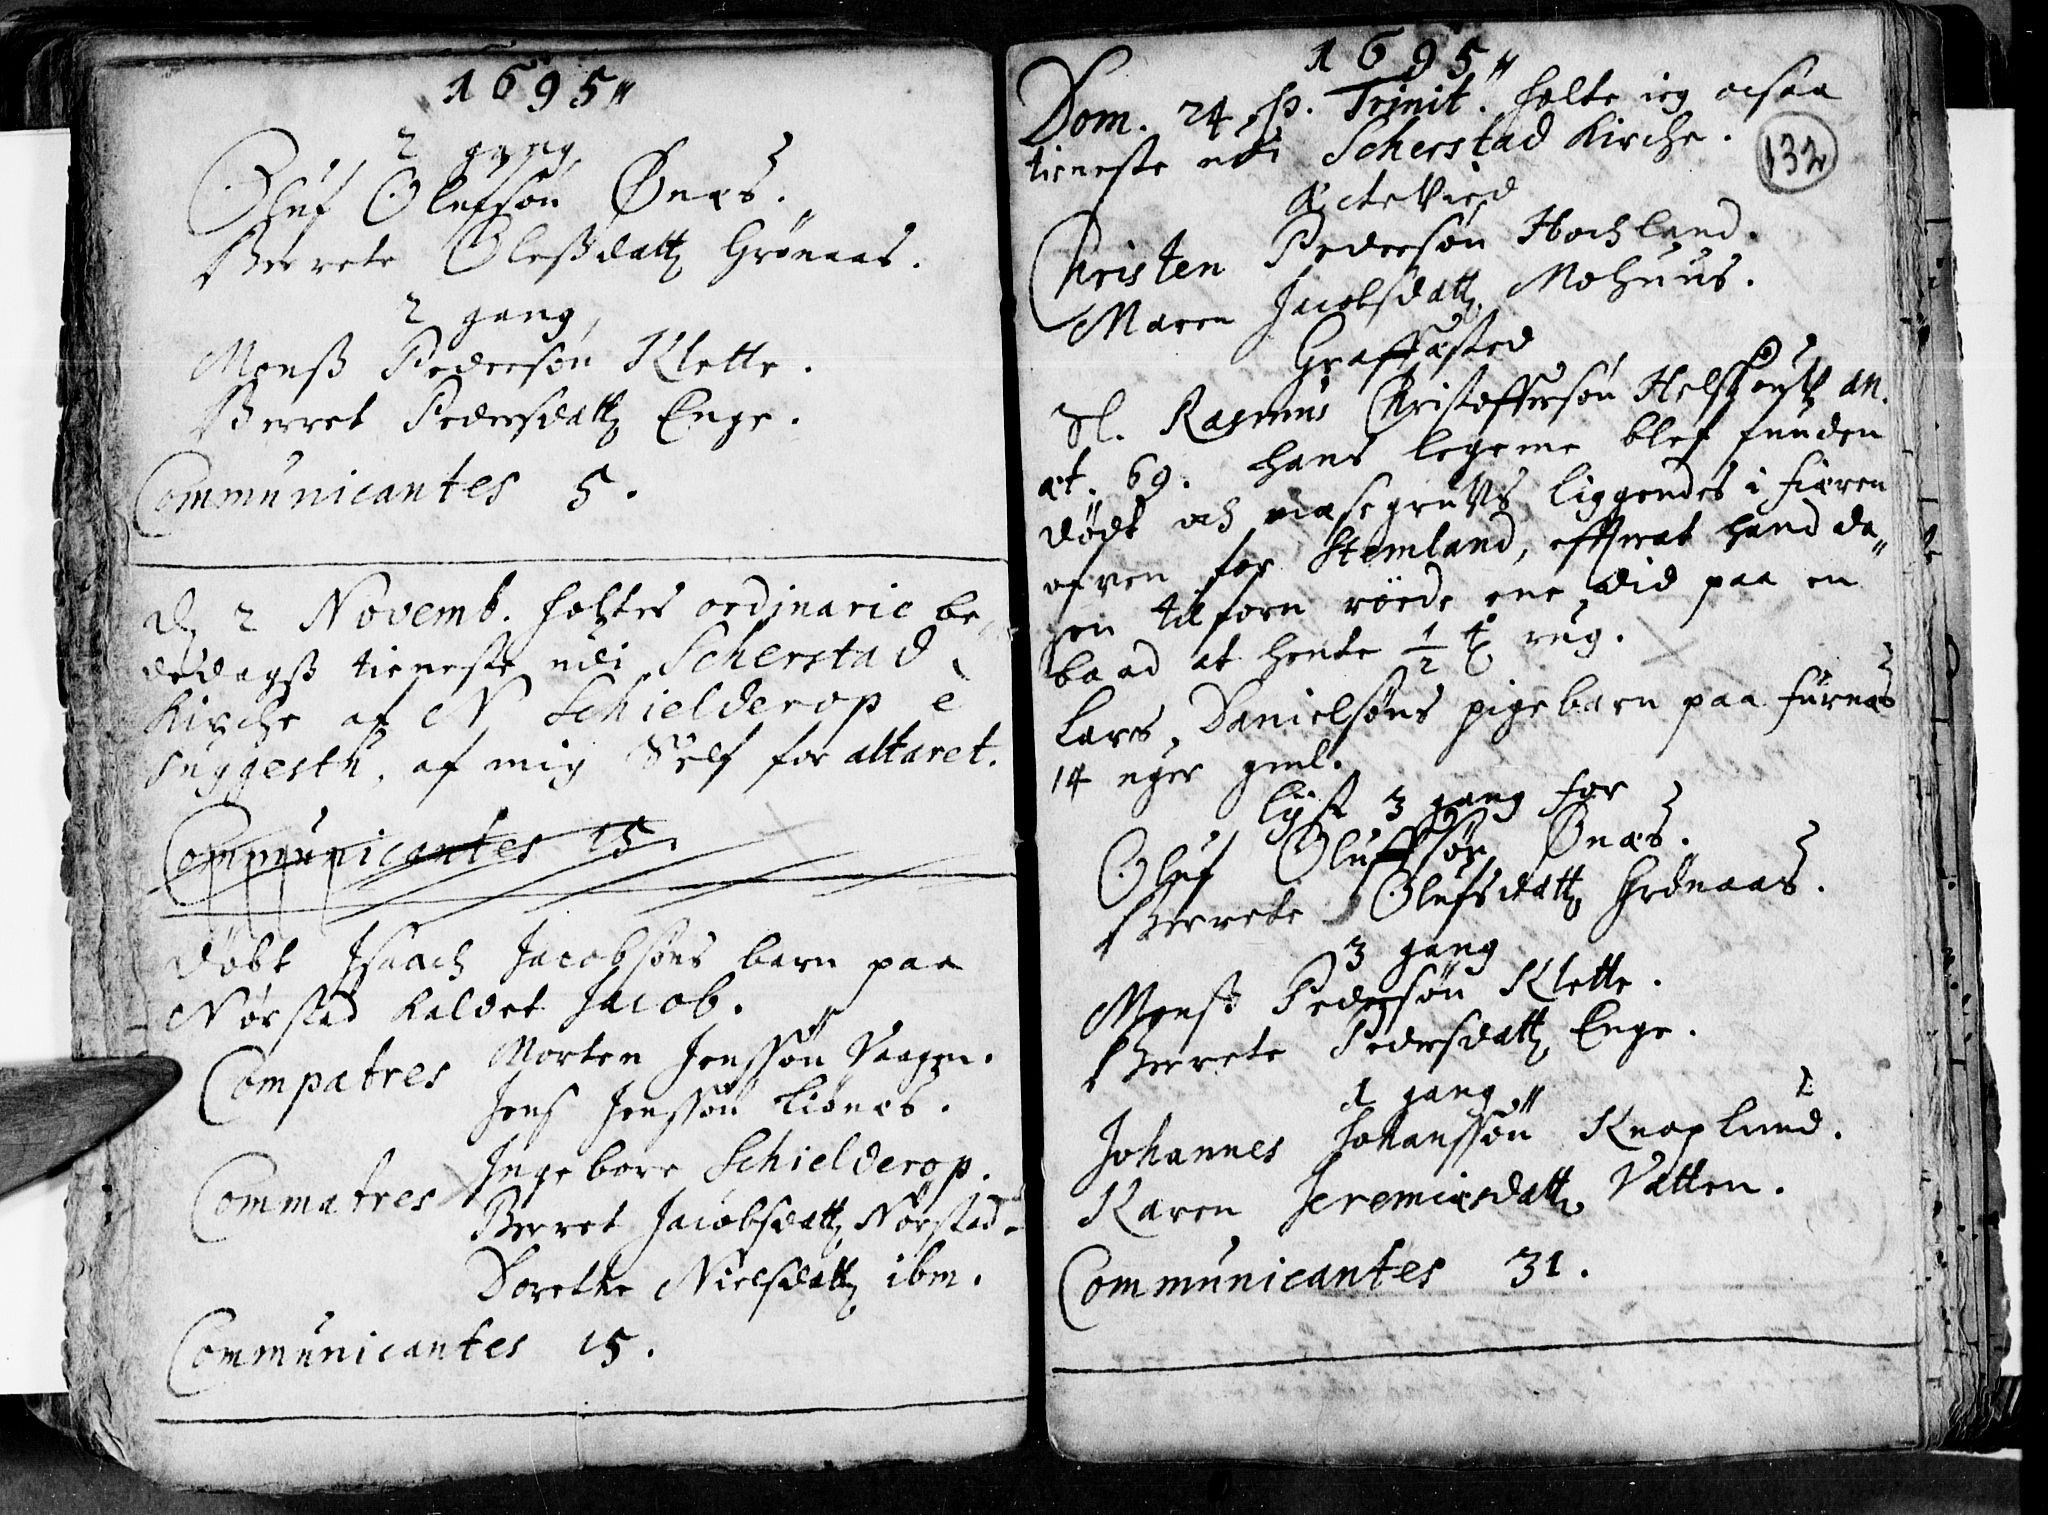 1695"
2 gang
Oluf Olufsøn Ønæs.
Berrete Oleßdatt Grønaas.
2 gang,
Monß Pedersøn Klette.
Berret Pedersdatt Enge.
Communicantes 5.
D 2 Novemb. holtes ordinarie be,,
dedagß tieneste udi Scherstad
Kirche af N Schielderop è
suggestu, af mig Self for altaret.
Communicantes 15.
Døbt Isaach Jacobsøns barn paa
Nørstad kaldet Jacob.
Compatres Morten Jenssøn Vaagen.
Jens Jenssøn Liønæs.
Commatres Ingebore Schielderop.
Berret Jacobsdatt Nørstad.
Dorethe Nielsdatt ibm.
Communicantes 15.
1695"
Dom. 24 p. Trinit. holte ieg ocsaa
tieneste udi Scherstad Kirche.
132
Ectevied
Christen Pedersøn Hochland.
Maren Jacobsdatt Mohuus.
Graffæsted
Sl. Rasmus Christoffersøn an.
æt. 69. hans legeme blef funden
dødt och liggendes i fiæren
ofven for Stemland, effterat hand da,,
gen tilforn roede ene did paa en
baad at hente 1/2 rug.
Lars Danielsøns pigebarn paa Furnæs
14 uger gml.
lyst 3 gang for
Oluf Oluffsøn Ønæs.
Berrete Olufsdatt Grønaas.
3 gang
Monß Pedersøn Klette.
Berrete Pedersdatt Enge.
1 gang
Johannes Johanssøn Knaplund.
Karen Jeremiæsdatt Vatten.
Communicantes 31.